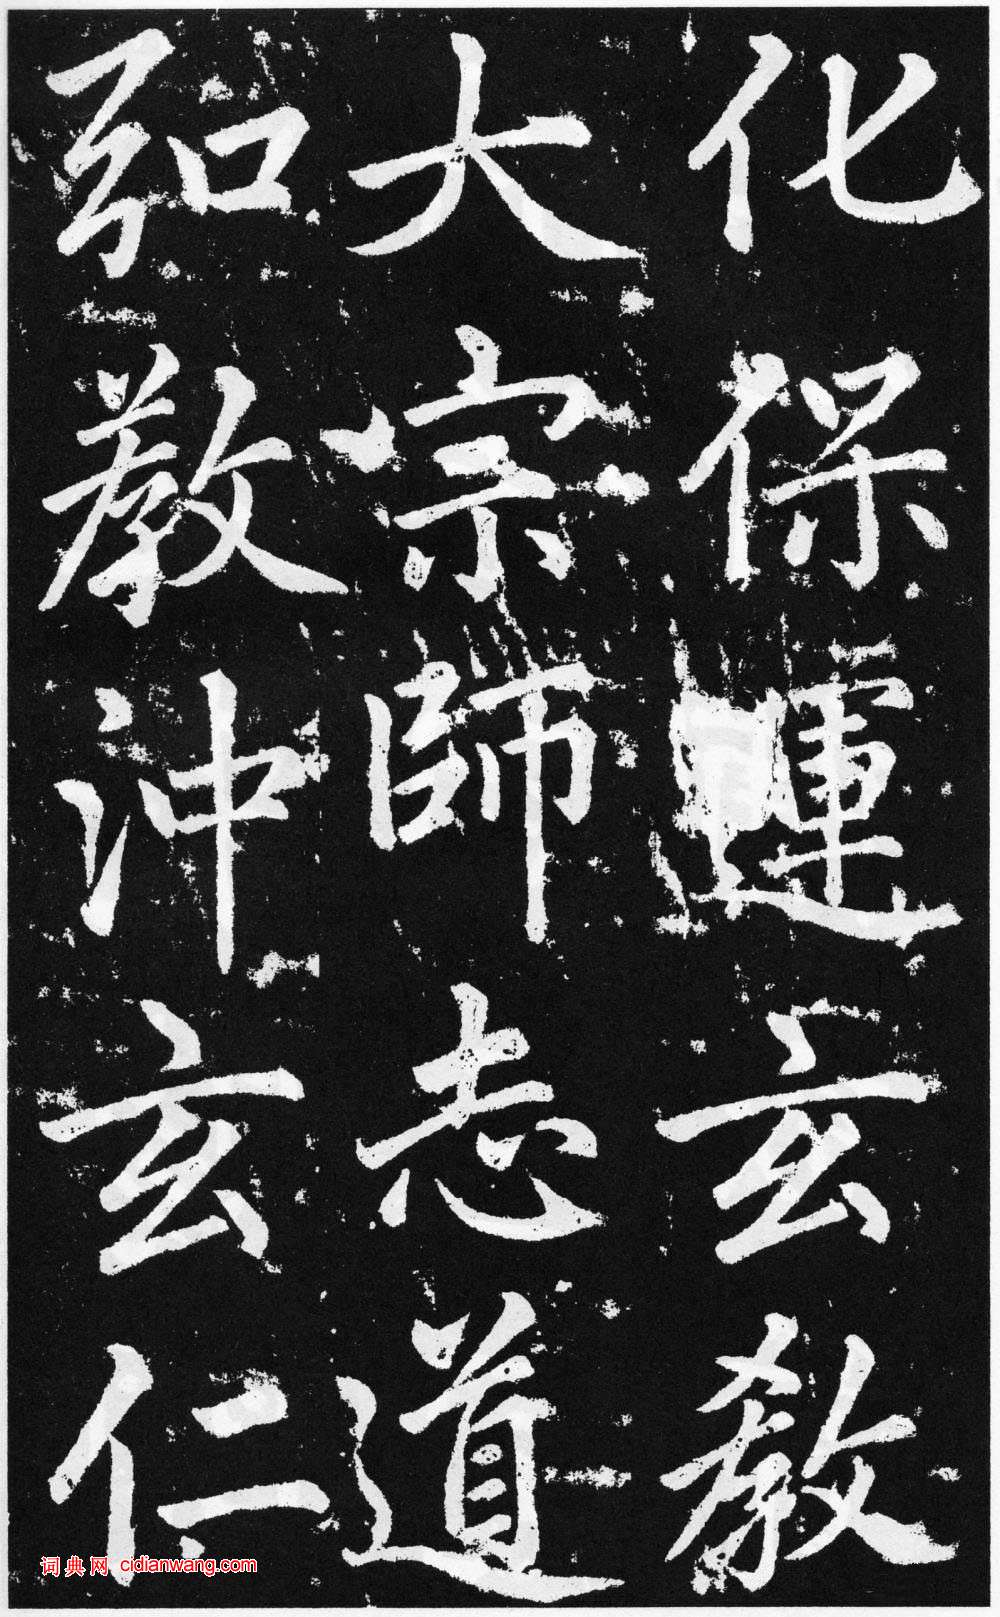 化保運玄教
大宗師志道
弘教沖玄仁
词典网 cidianwang.com